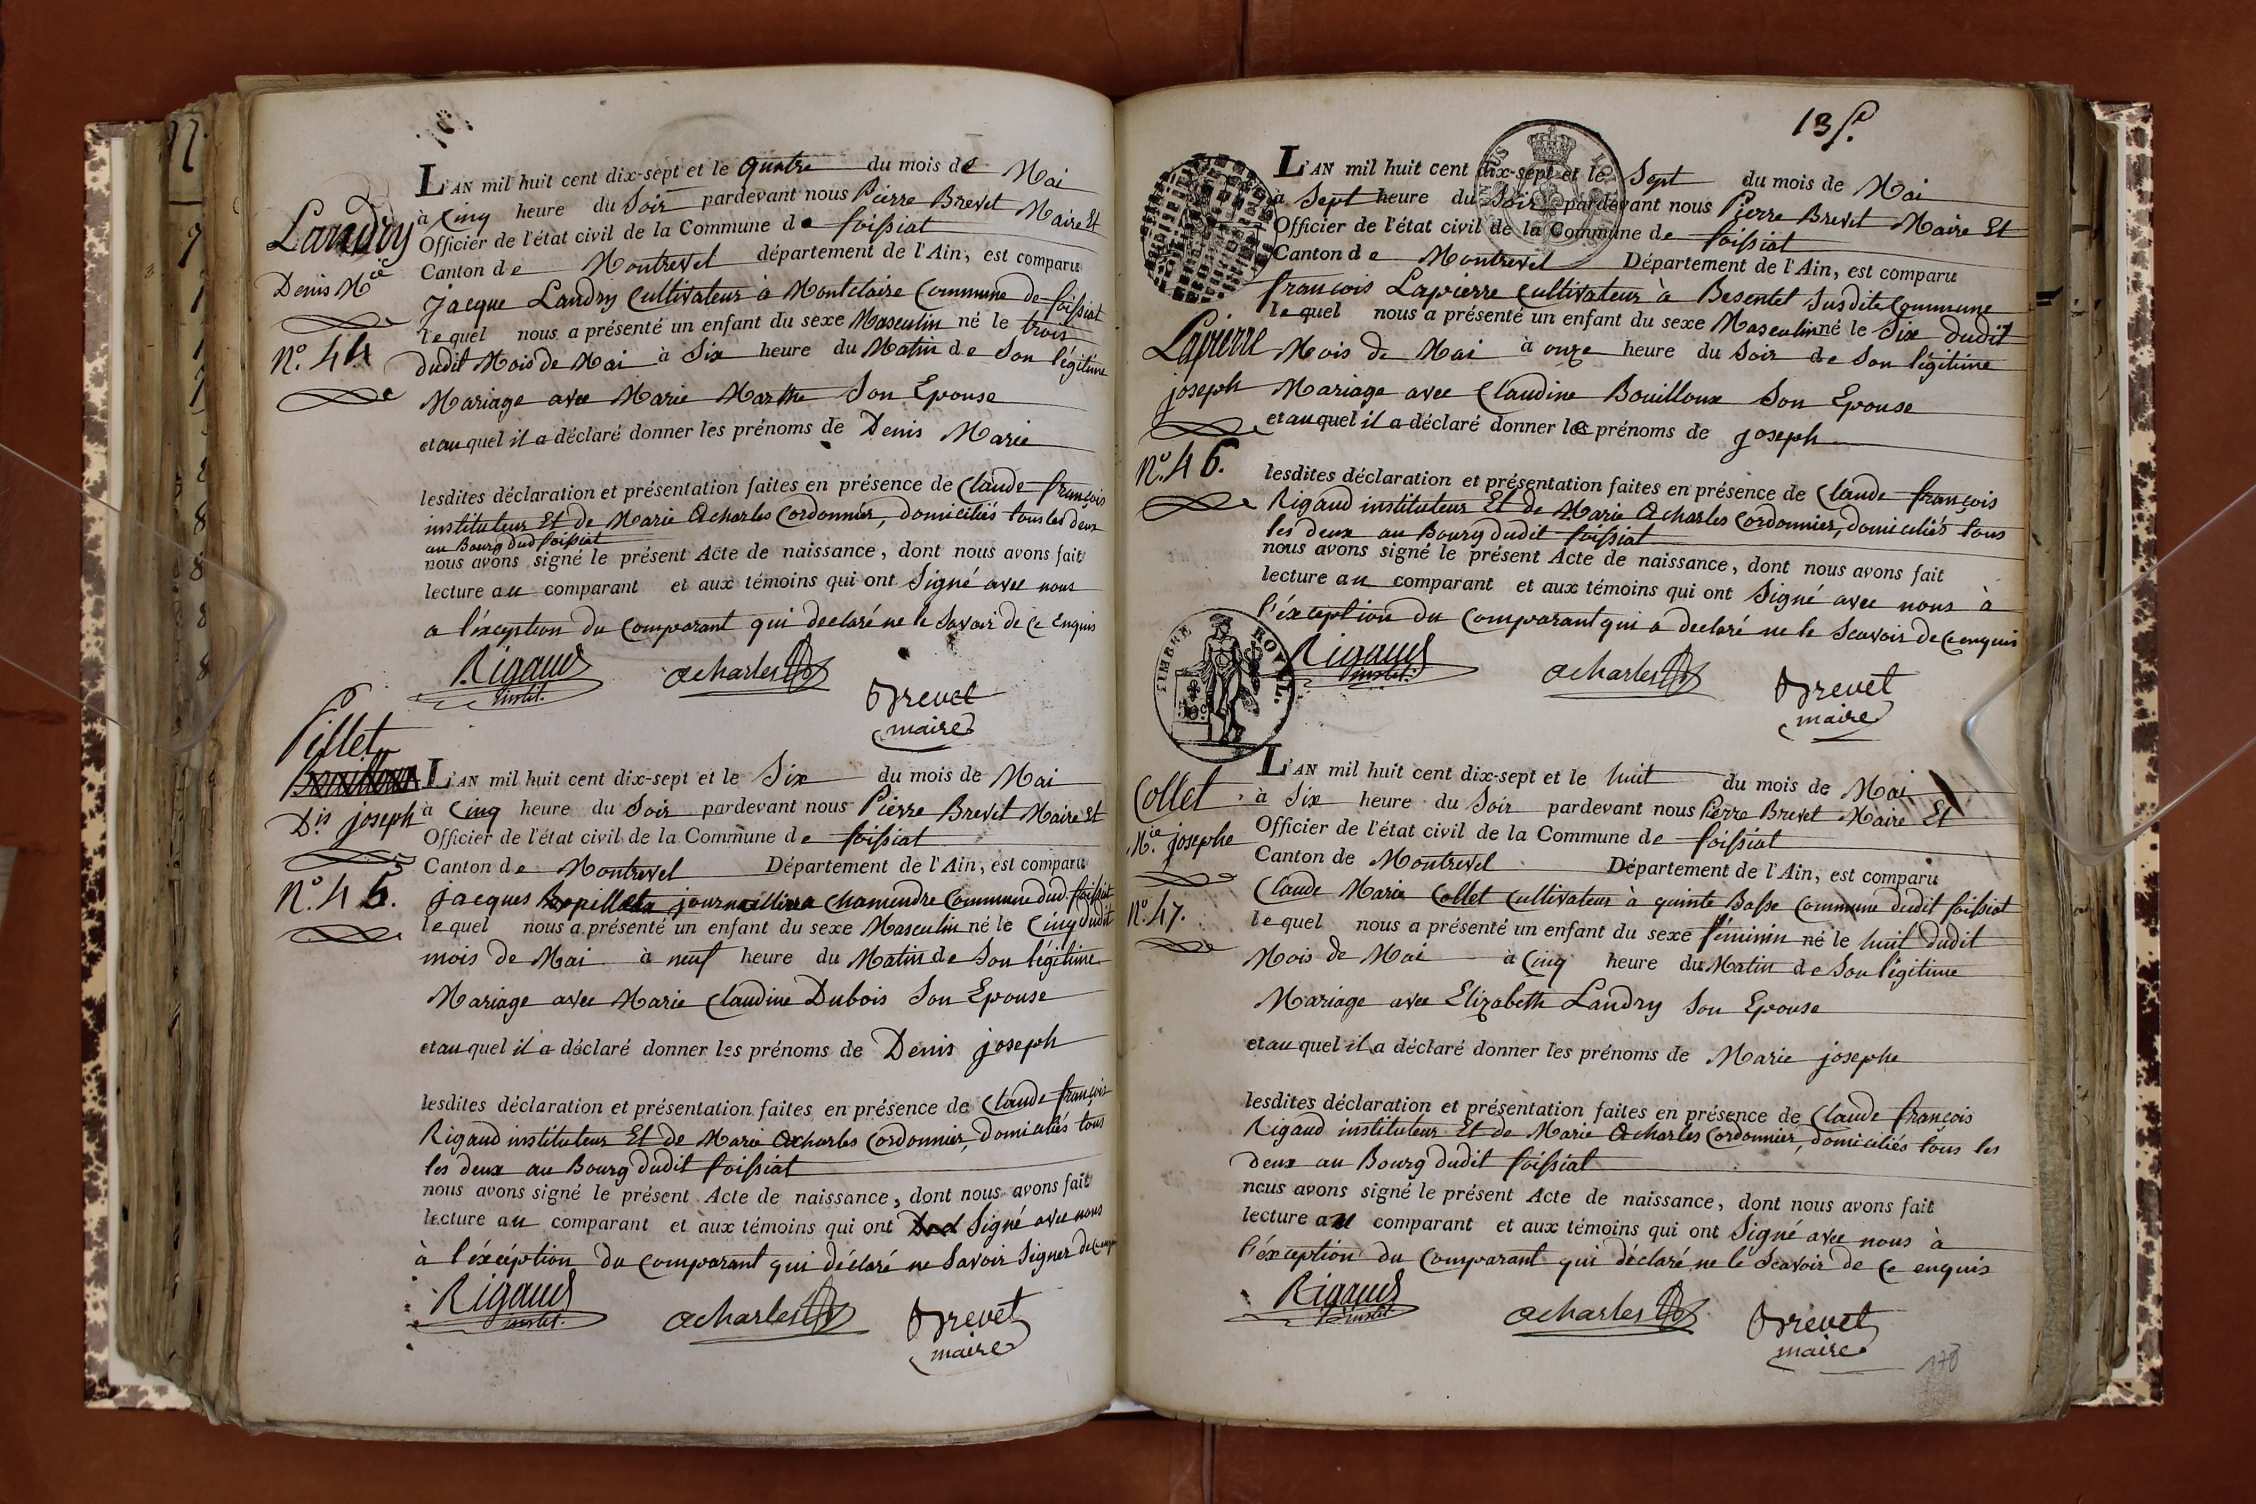 L'AN mil huit cent dix-sept et le quatre du mois de Mai
à Cinq heure du Soir pardevant nous Pierre Brevet Maire Et
Officier de l'état civil de la Commune de foissiat
Canton de Montrevel département de l'Ain, est comparu
jacque Landry Cultivateur à Montclaire Commune de foissiat
lequel nous a présenté un enfant du sexe Masculin né le trois
dudit Mois de Mai à Six heure du Matin de Son légitime
Mariage avec Marie Marthe Son Epouse
et auquel il a déclaré donner les prénoms de Denis Marie
lesdites déclaration et présentation faites en présence de Claude françois
instituteur Et de Marie Acharles Cordonnier, domiciliés tous les deux
au Bourg dud foissiat
nous avons signé le présent Acte de naissance, dont nous avons fait
lecture au comparant et aux témoins qui ont Signé avec nous
a l'éxception du Comparant qui declaré ne le Savoir de Ce Enquis
Rigaud acharles Brevet
instit. maire
Landry
Denis Mie
N.o 44
Pillet
Dis joseph
N.o 45.
L'AN mil huit cent dix-sept et le Six du mois de Mai
à Cinq heure du Soir pardevant nous Pierre Brevet Maire Et
Officier de l'état civil de la Commune de foissiat
Canton de Montrevel Département de l'Ain, est comparu
jacques pillet Commune dud. foissiat
lequel nous a présenté un enfant du sexe Masculin né le Cinq dudit
mois de Mai à neuf heure du Matin de Son légitime
Mariage avec Marie Claudine Dubois Son Epouse
et auquel il a déclaré donner les prénoms de Denis joseph
lesdites déclaration et présentation faites en présence de Claude françois
Rigaud instituteur Et de Marie Acharles Cordonnier, domiciliés tous
les deux au Bourg dudit foissiat
nous avons signé le présent Acte de naissance, dont nous avons fait
lecture au comparant et aux témoins qui ont Signé avec nous
à l'éxcéption du Comparant qui déclaré ne Savoir Signer de Ce enquis
Rigaud acharles Brevet
instit. maire
13 fe.
L'AN mil huit cent dix-sept et le Sept du mois de Mai
à Sept heure du Soir pardevant nous Pierre Brevet Maire Et
Officier de l'état civil de la Commune de foissiat
Canton de Montrevel Département de l'Ain, est comparu
françois Lapierre Cultivateur à Besentet Susdite Commune
lequel nous a présenté un enfant du sexe Masculin né le Six dudit
Mois de Mai à onze heure du Soir de Son légitime
Mariage avec Claudine Bouilloux Son Epouse
et auquel il a déclaré donner les prénoms de joseph
lesdites déclaration et présentation faites en présence de Claude françois
Rigaud instituteur Et de Marie Acharles Cordonnier, domiciliés tous
les deux au Bourg dudit foissiat
nous avons signé le présent Acte de naissance, dont nous avons fait
lecture au comparant et aux témoins qui ont Signé avec nous à
l'éxception du Comparant qui a declaré ne le Scavoir de Ce enquis
Rigaud acharles Brevet
instit. maire
Lapierre
joseph
N.o 46.
TIMBRE ROYAL.
Collet
M.ie josephe
N.o 47.
L'AN mil huit cent dix-sept et le huit du mois de Mai
à Six heure du Soir pardevant nous Pierre Brevet Maire Et
Officier de l'état civil de la Commune de foissiat
Canton de Montrevel Département de l'Ain, est comparu
Claude Marie Collet Cultivateur à quinte Basse Commune dudit foissiat
lequel nous a présenté un enfant du sexe féminin né le huit dudit
Mois de Mai à Cinq heure du Matin de Son légitime
Mariage avec Elizabeth Landry Son Epouse
et auquel il a déclaré donner les prénoms de Marie josephe
lesdites déclaration et présentation faites en présence de Claude françois
Rigaud instituteur Et de Marie Acharles Cordonnier, domiciliés tous les
deux au Bourg dudit foissiat
nous avons signé le présent Acte de naissance, dont nous avons fait
lecture au comparant et aux témoins qui ont Signé avec nous à
l'éxception du Comparant qui déclaré ne lé Scavoir de Ce enquis
Rigaud acharles Brevet
instit maire
170